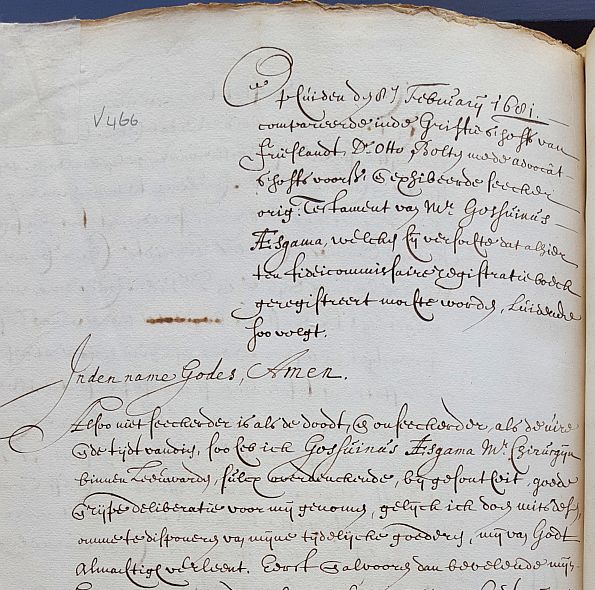 V466
Op huiden den 8 February 1681.
compareerde inde Griffie s'hoffs van
Frieslandt, Dr. Otto Bolta mede advocat
s'hoffs voors. & exhibeerde seecker
orig: Testament van Mr. Gossuinus
Æsgama, welcke hij versochte dat alhier
ten fideicommissaire registratie boeck
geregistreert mochte worden, Luidende
soo volgt.
In den name Godes, Amen.
Alsoo niet seeckerder is als de doodt, & onseeckerder, als de uire
& de tijdt vandien, soo heb ick Gossuinus Æsgama Mr. Chirurgijn
binnen Leeuwarden, sulcx overdenckende, bij gesontheit, goede
& rijpe deliberatie voor mij genomen, gelijck ick doen mits desen,
omme te disponeren van mijne tijdelijcke goederen, mij van Godt
Almachtich verleent. Eerst & alvooren dan bevelende mijn